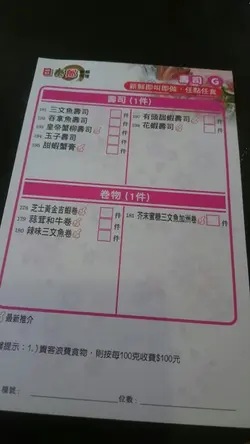 壽司 G
新鮮即叫即做，任點任食
壽司 (1件)
三文魚壽司 件
吞拿魚壽司 件
皇帝蟹柳壽司 件
玉子壽司 件
甜蝦蟹膏 件
有頭甜蝦壽司 件
花蝦壽司 件
卷物 (1件)
芝士黃金吉蝦卷 件
179 蒜茸和牛卷 件
180 辣味三文魚卷 件
芥末蜜糖三文魚加州卷 件
最新推介
提示：1.) 賓客浪費食物，則按每100克收費$100元
檯號： 位數：